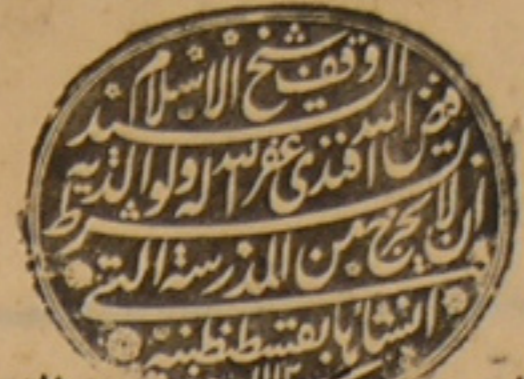 وقف شيخ الاسلام السيد
فيض الله افندى غفر الله له ولوالديه
بشرط ان لا يخرج من المدرسة التى
انشاها بقسطنطينية
١١١٢